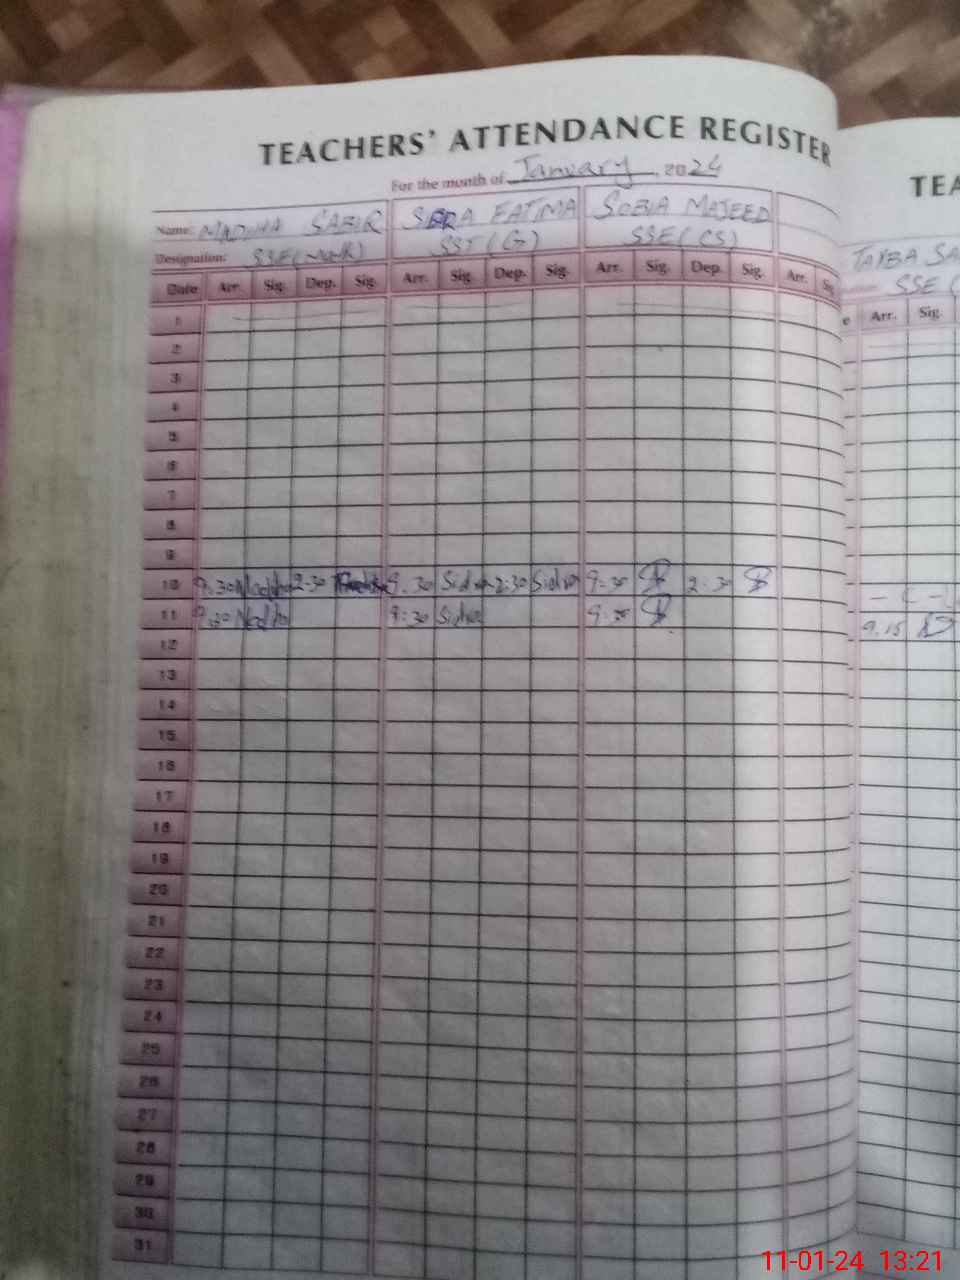 TEACHERS' ATTENDANCE REGISTER
For the month of January, 2024
TEA
Name: SABIR FATIMA SOBIA MAJEED
Designation: SST (G) SSE (CS)
TAYBA SA
SSE (
Date Arr. Sig. Dep. Sig. Arr. Sig. Dep. Sig. Arr. Sig. Dep. Sig. Arr. Sig
e Arr. Sig.
1
2
3
4
5
6
7
8
9
10 9.30 2-30 9.30 Sidra 2:30 Sidra 9-30 2-30
- C - L
11 9.30 9:30 Sidra 9-30
9.15
12
13
14
15
16
17
18
19
20
21
22
23
24
25
26
27
28
29
30
31
11-01-24 13:21